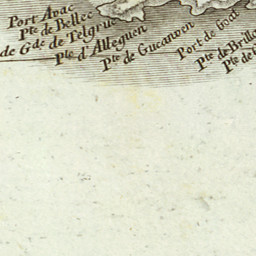 Port Avac
Pte de Bellec
de Gde de Telgruc
Pte d'Alleguen
Pte de Gucanven
Port de Goac
Pte de Brilla
Pte de